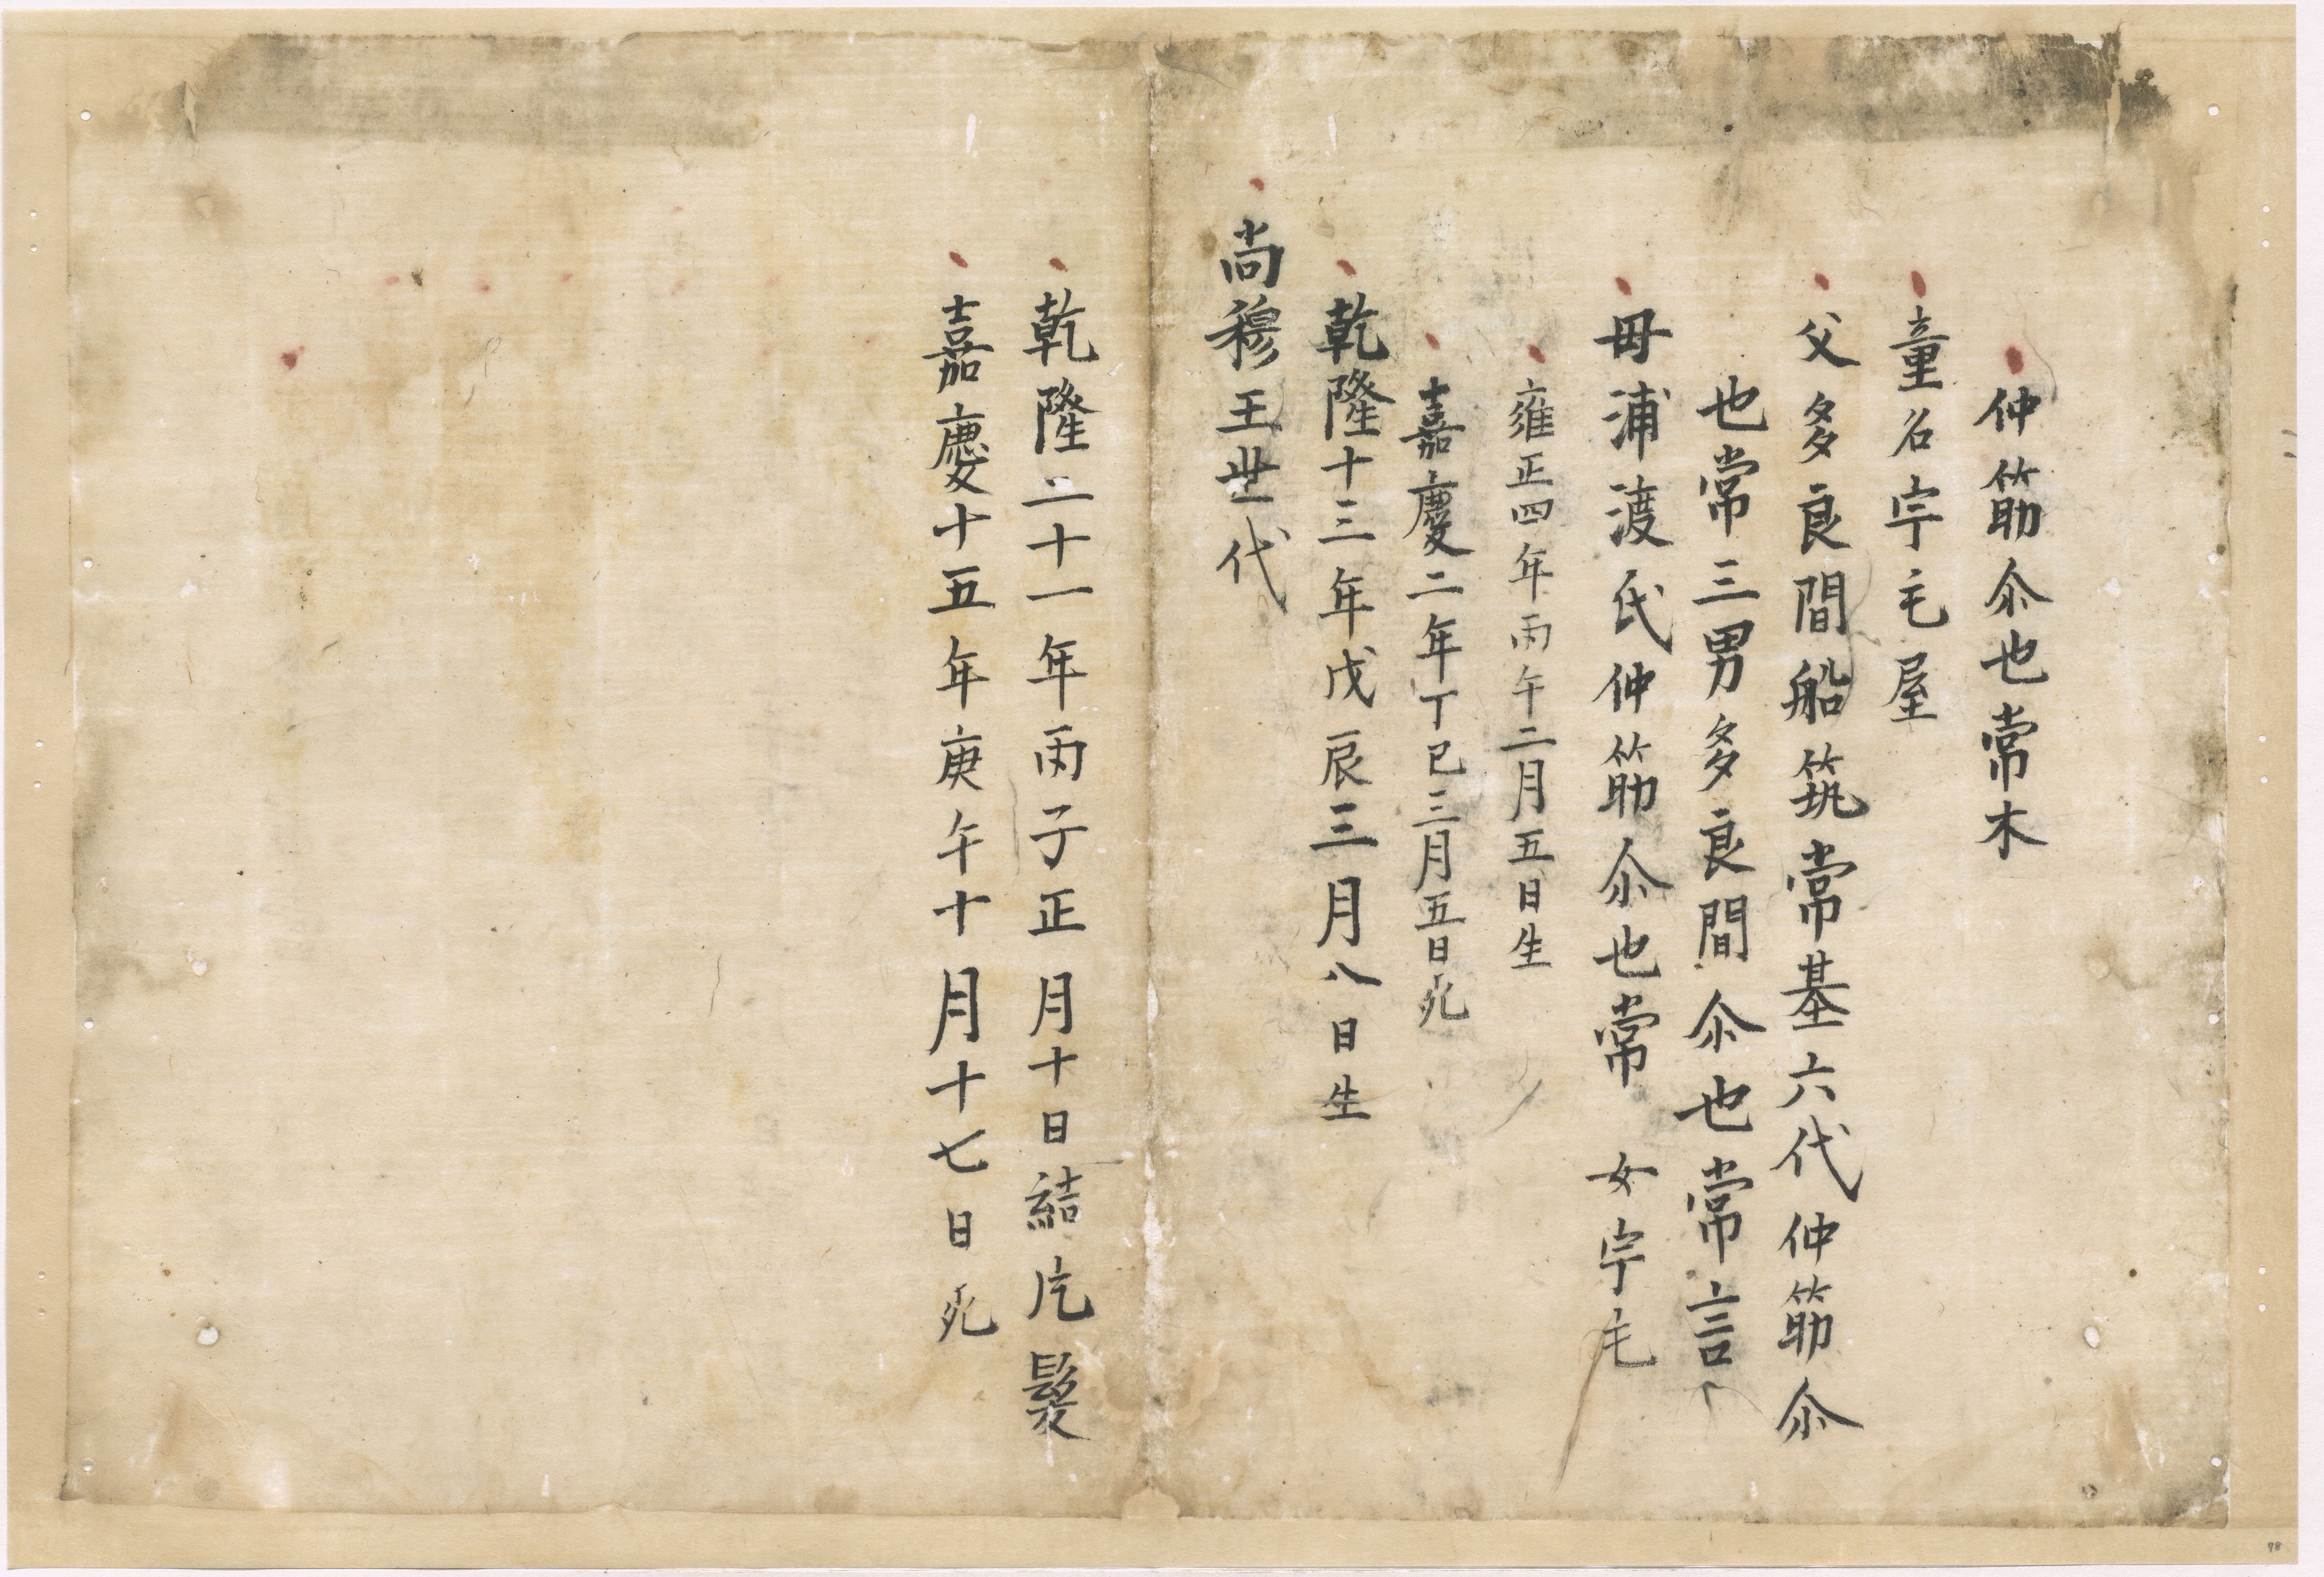 仲筋尒也常木
童名宇毛屋
父多良間船筑常基六代仲筋尒
也常三男多良間尒也常言
母浦渡氏仲筋尒也常 女宇毛
雍正四年丙午二月五日生
嘉慶二年丁巳三月五日死
乾隆十三年戊辰三月八日生
尚穆王世代
乾隆二十一年丙子正月十日結片髮
嘉慶十五年庚午十月十七日死